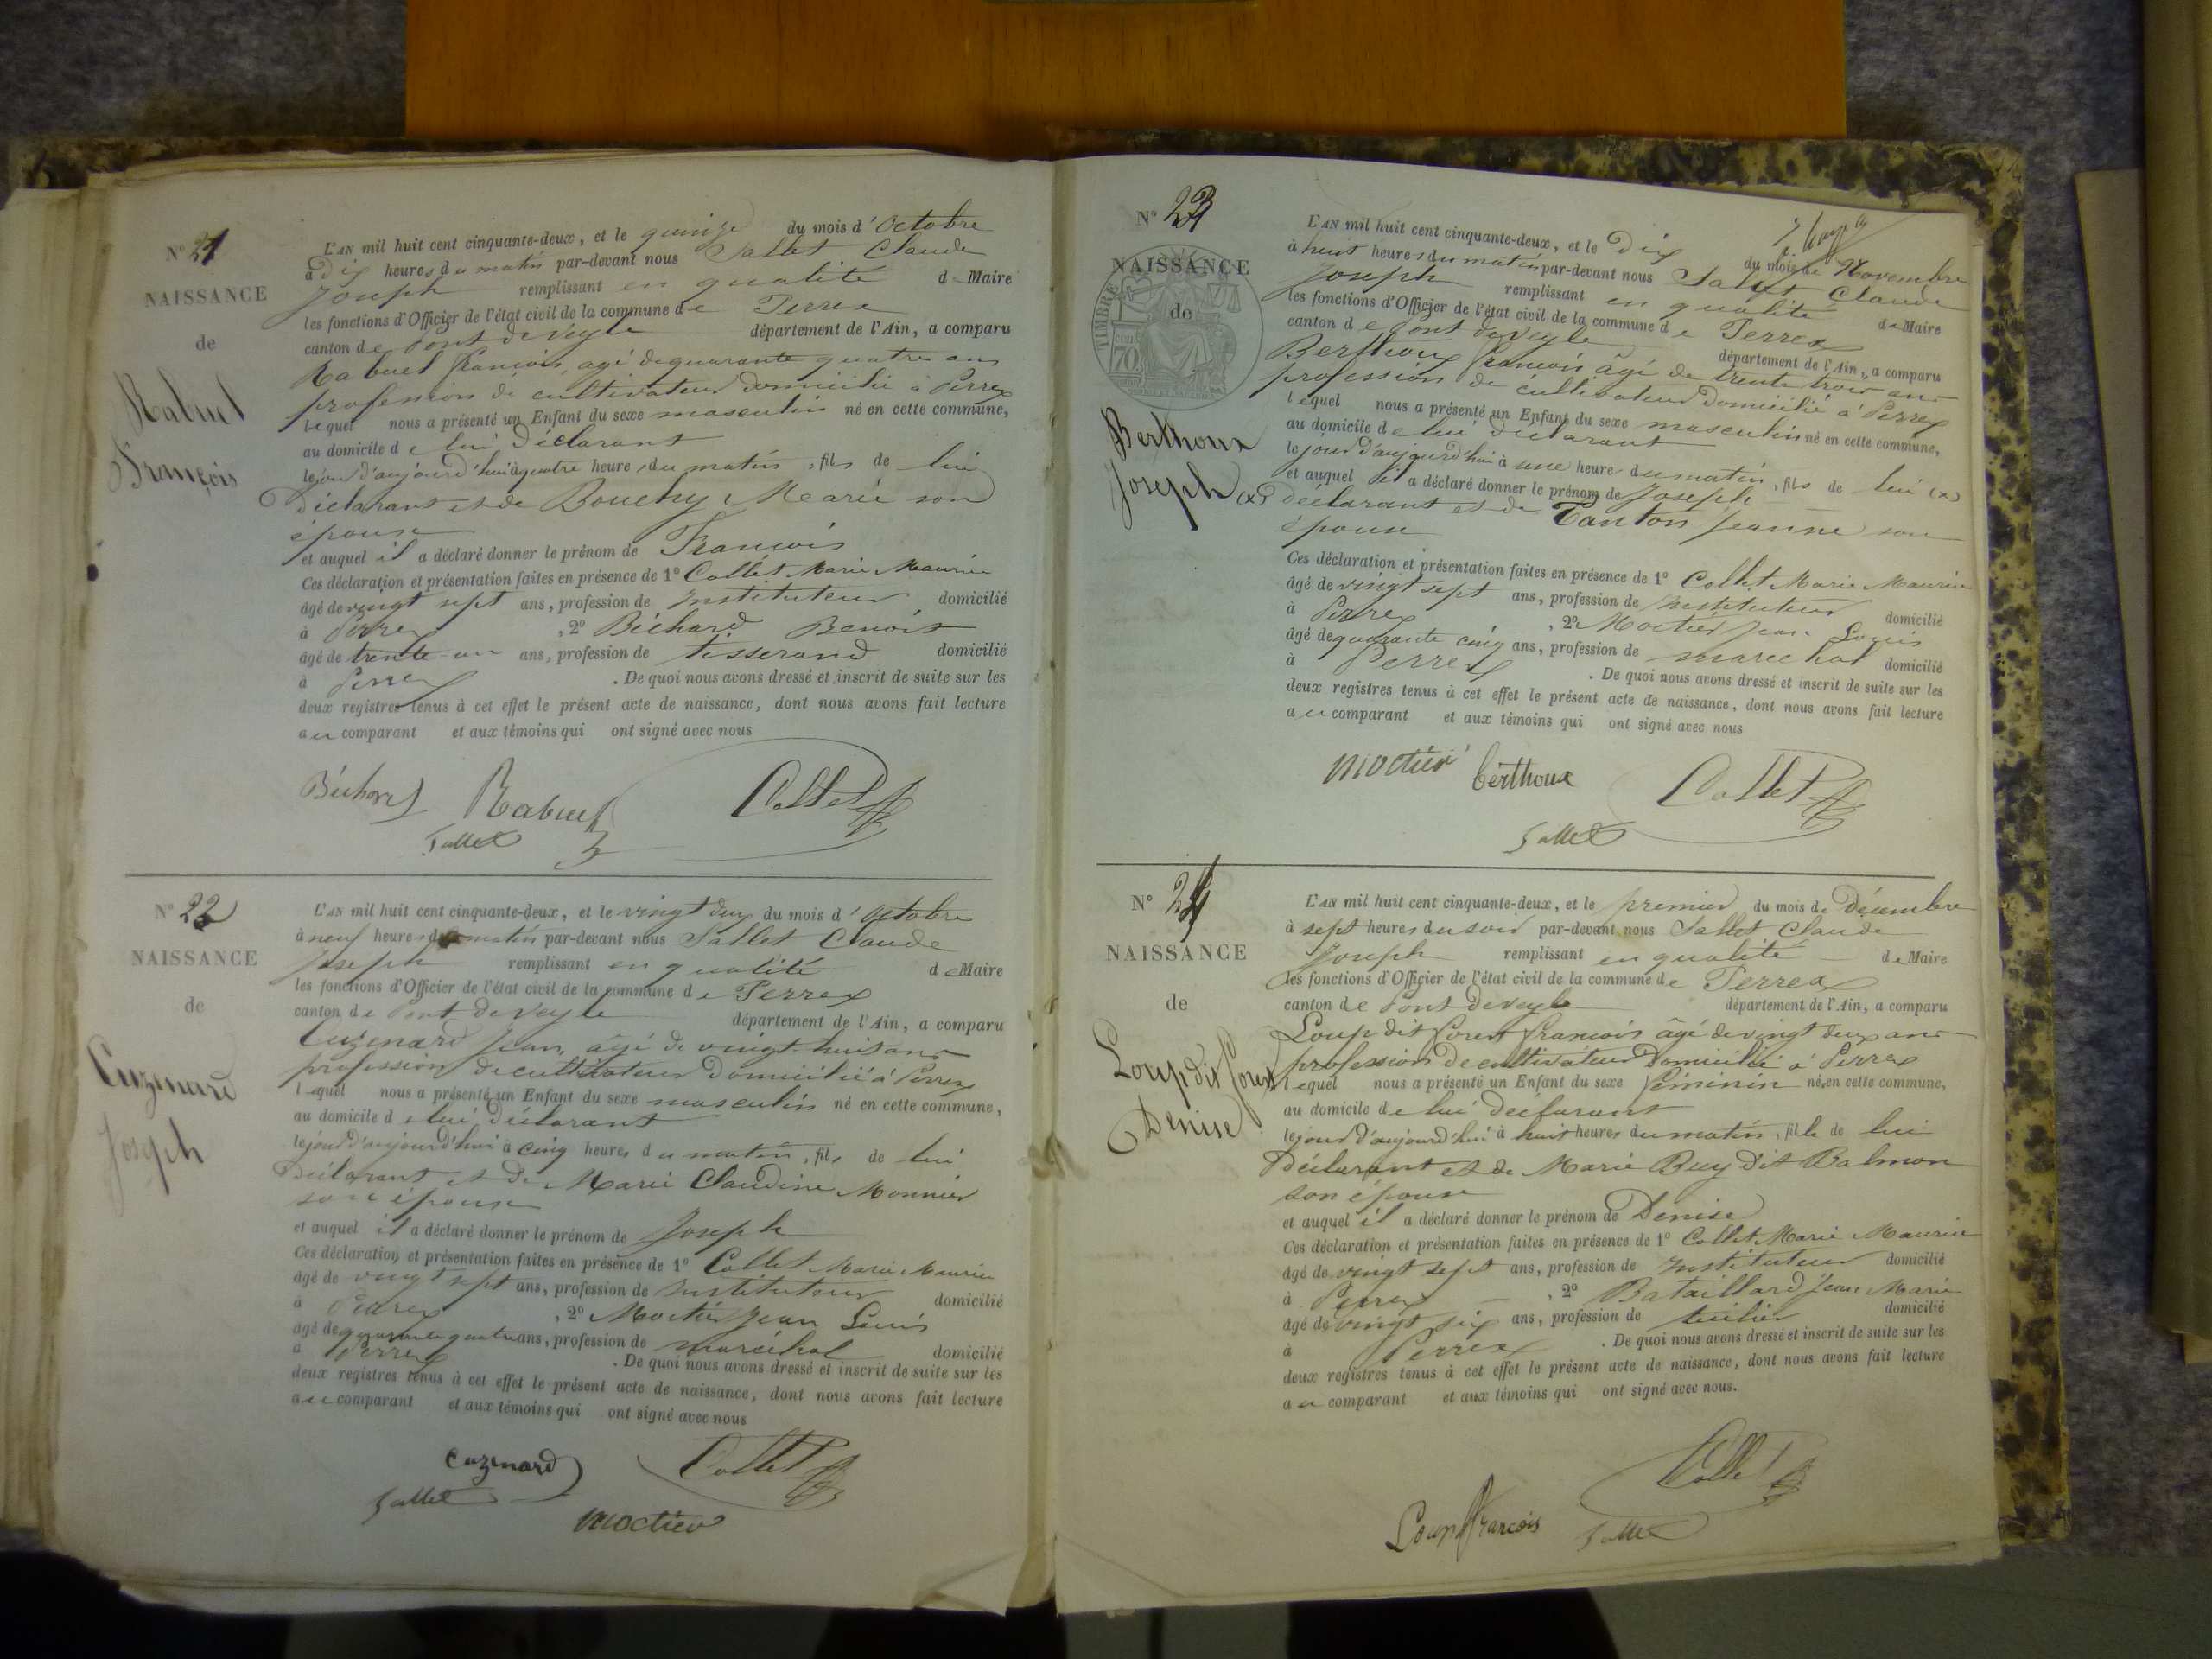 N° 21
NAISSANCE
de
Rabuel
François
L'AN mil huit cent cinquante-deux, et le quinze du mois d'Octobre
à Dix heures du matin par-devant nous Sallet Claude
Joseph remplissant en qualité de Maire
les fonctions d'Officier de l'état civil de la commune de Perrex
canton de Pont de Veyle département de l'Ain, a comparu
Rabuel François, agé de quarante quatre ans
profession de cultivateur domicilié à Perrex
lequel nous a présenté un Enfant du sexe masculin né en cette commune,
au domicile de lui Déclarant
le jour d'aujourd'hui à quatre heures du matin, fils de lui
Déclarant et de Bouchy Marie son
épouse
et auquel il a déclaré donner le prénom de François
Ces déclaration et présentation faites en présence de 1° Collet Marie Maurice
âgé de vingt sept ans, profession de Instituteur domicilié
à Perrex, 2° Béchard Benoit
âgé de trente un ans, profession de tisserand domicilié
à Perrex. De quoi nous avons dressé et inscrit de suite sur les
deux registres tenus à cet effet le présent acte de naissance, dont nous avons fait lecture
au comparant et aux témoins qui ont signé avec nous
Béchard Rabuel Collet
Sallet
N° 22
NAISSANCE
de
Cuzenard
Joseph
L'AN mil huit cent cinquante-deux, et le vingt deux du mois d'Octobre
à neuf heures du matin par-devant nous Sallet Claude
Joseph remplissant en qualité de Maire
les fonctions d'Officier de l'état civil de la commune de Perrex
canton de Pont de Veyle département de l'Ain, a comparu
Cuzenard Jean, agé de vingt-huit ans
profession de cultivateur Domicilié à Perrex
lequel nous a présenté un Enfant du sexe masculin né en cette commune,
au domicile de lui Déclarant
le jour d'aujourd'hui à cinq heures du matin, fils de lui
Déclarant et de Marie Claudine Monnier
son épouse
et auquel il a déclaré donner le prénom de Joseph
Ces déclaration et présentation faites en présence de 1° Collet Marie Maurice
âgé de vingt sept ans, profession de Instituteur domicilié
à Perrex, 2° Moctier Jean Louis
âgé de quarante quatre ans, profession de maréchal domicilié
à Perrex. De quoi nous avons dressé et inscrit de suite sur les
deux registres tenus à cet effet le présent acte de naissance, dont nous avons fait lecture
au comparant et aux témoins qui ont signé avec nous
Cuzenard Collet
Sallet
Moctier
N° 23
NAISSANCE
de
TIMBRE
70
Berthoux
Joseph
L'AN mil huit cent cinquante-deux, et le Dix du mois de Novembre
à huit heures du matin par-devant nous Sallet Claude
Joseph remplissant en qualité de Maire
les fonctions d'Officier de l'état civil de la commune de Perrex
canton de Pont de Veyle département de l'Ain, a comparu
Berthoux François âgé de trente trois ans
profession de cultivateur Domicilié à Perrex
lequel nous a présenté un Enfant du sexe masculin né en cette commune,
au domicile de lui déclarant
le jour d'aujourd'hui à une heure du matin, fils de lui (x)
et auquel il a déclaré donner le prénom de Joseph
(x) déclarant et de Tanton Jeanne son
épouse
Ces déclaration et présentation faites en présence de 1° Collet Marie Maurice
âgé de vingt sept ans, profession de Instituteur domicilié
à Perrex, 2° Moctier Jean Louis
âgé de quarante cinq ans, profession de marechal domicilié
à Perrex. De quoi nous avons dressé et inscrit de suite sur les
deux registres tenus à cet effet le présent acte de naissance, dont nous avons fait lecture
au comparant et aux témoins qui ont signé avec nous
Moctier Berthoux Collet
Sallet
N° 24
NAISSANCE
de
Loup dit Forest
Denise
L'AN mil huit cent cinquante-deux, et le premier du mois de Décembre
à sept heures du soir par-devant nous Sallet Claude
Joseph remplissant en qualité de Maire
les fonctions d'Officier de l'état civil de la commune de Perrex
canton de Pont de Veyle département de l'Ain, a comparu
Loup dit Forest François âgé de vingt deux ans
profession de cultivateur Domicilié à Perrex
lequel nous a présenté un Enfant du sexe féminin né en cette commune,
au domicile de lui déclarant
le jour d'aujourd'hui à huit heures du matin, fille de lui
Déclarant et de Marie Buy dit Balmon
son épouse
et auquel il a déclaré donner le prénom de Denise
Ces déclaration et présentation faites en présence de 1° Collet Marie Maurice
âgé de vingt sept ans, profession de Instituteur domicilié
à Perrex, 2° Bataillard Jean Marie
âgé de vingt six ans, profession de domicilié
à Perrex. De quoi nous avons dressé et inscrit de suite sur les
deux registres tenus à cet effet le présent acte de naissance, dont nous avons fait lecture
au comparant et aux témoins qui ont signé avec nous.
Collet
Loup François Sallet